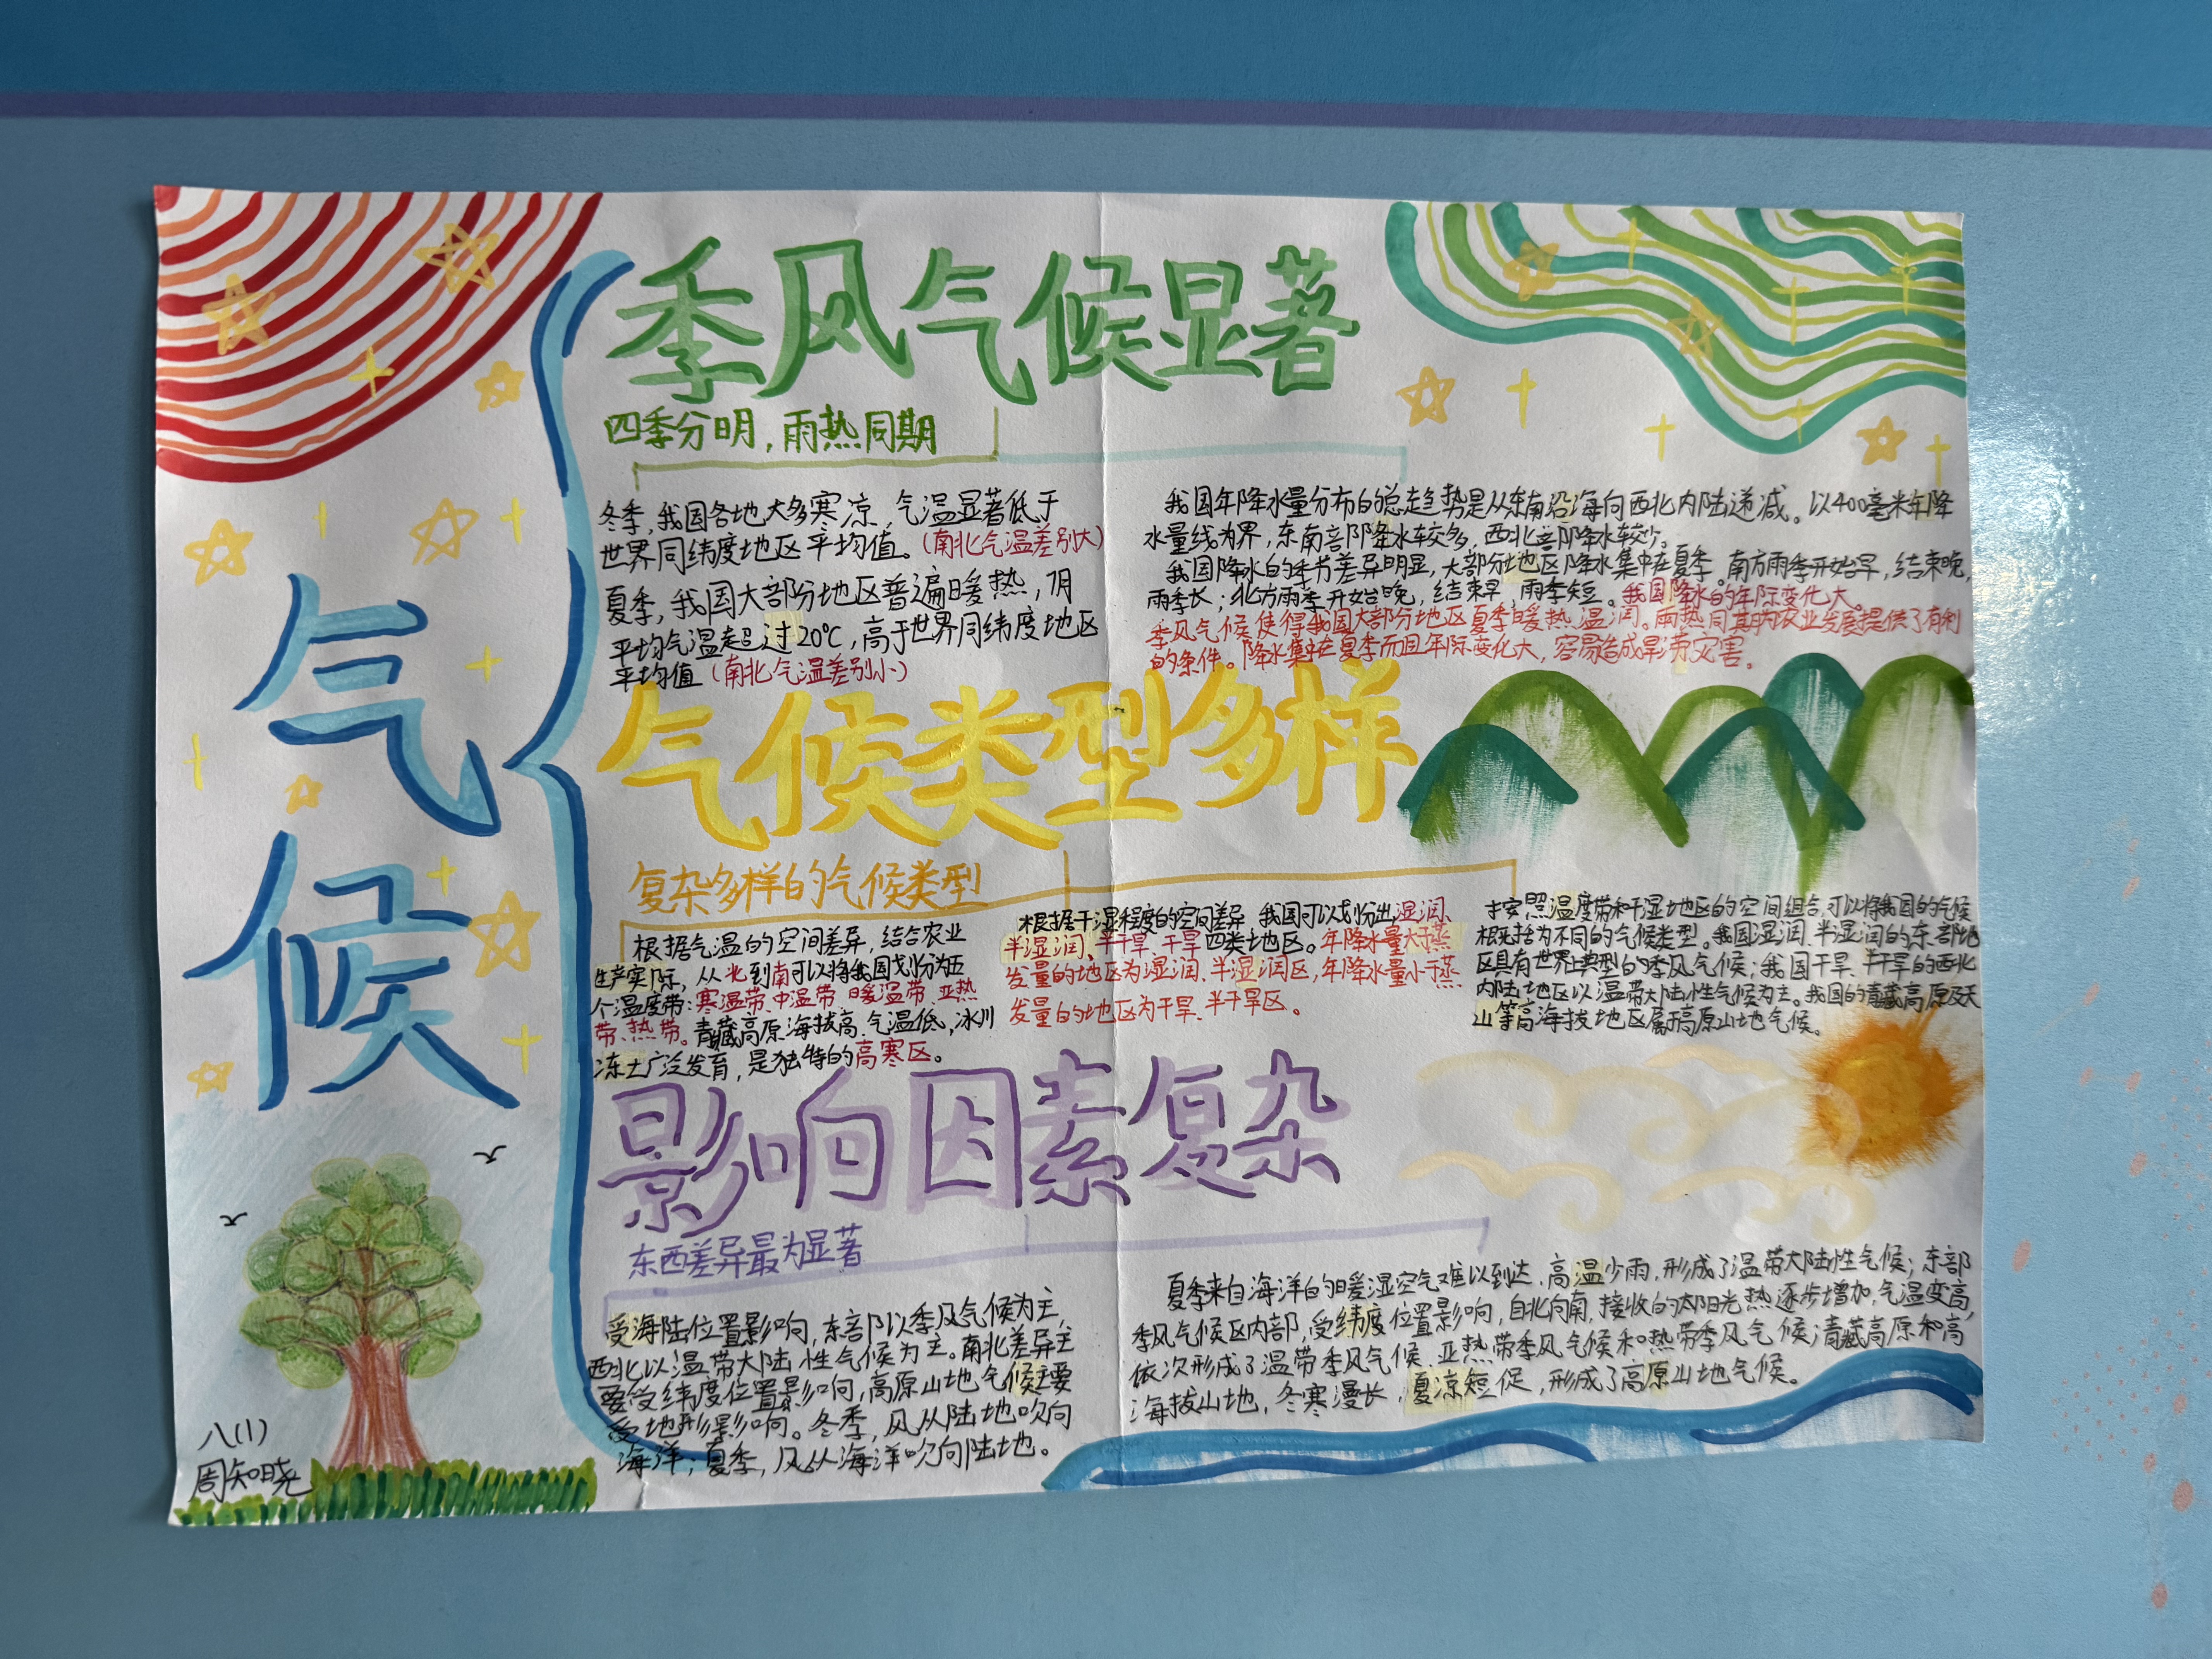 气候
季风气候显著
四季分明，雨热同期
冬季，我国各地大多寒凉，气温显著低于
世界同纬度地区平均值。(南北气温差别大)
夏季，我国大部分地区普遍暖热，7月
平均气温超过20℃，高于世界同纬度地区
平均值(南北气温差别小)
我国年降水量分布的总走趋势是从东南沿海向西北内陆递减。以400毫米年降
水量线为界，东南部降水较多，西北部降水较少。
我国降水的季节差异明显，大部分地区降水集中在夏季。南方雨季开始早，结束晚，
雨季长；北方雨季开始晚，结束早，雨季短。我国降水的年际变化大。
季风气候使得我国大部分地区夏季暖热、温润。雨热同期为农业发展提供了有利
的条件。降水集中在夏季而且年际变化大，容易造成旱涝灾害。
气候类型多样
复杂多样的气候类型
根据气温的空间差异，结合农业
生产实际，从北到南可以将我国划分为五
个温度带：寒温带、中温带、暖温带、亚热
带、热带。青藏高原海拔高、气温低，冰川
冻土广泛发育，是独特的高寒区。
根据干湿程度的空间差异，我国可以划分出湿润、
半湿润、半干旱、干旱四类地区。年降水量大于蒸
发量的地区为湿润、半湿润区，年降水量小于蒸
发量的地区为干旱、半干旱区。
按照温度带和干湿地区的空间组合，可以将我国的气候
概括为不同的气候类型。我国湿润、半湿润的东部地
区具有世界上典型的季风气候；我国干旱、半干旱的西北
内陆地区以温带大陆性气候为主。我国的青藏高原及天
山等高海拔地区属于高原山地气候。
影响因素复杂
东西差异最为显著
受海陆位置影响，东部以季风气候为主，
西北以温带大陆性气候为主。南北差异主
要受纬度位置影响，高原山地气候主要
受地形影响。冬季，风从陆地吹向
海洋；夏季，风从海洋吹向陆地。
夏季来自海洋的暖湿空气难以到达，高温少雨，形成了温带大陆性气候；东部
季风气候区内部，受纬度位置影响，自北向南，接收的太阳光热逐步增加，气温变高，
依次形成了温带季风气候、亚热带季风气候和热带季风气候；青藏高原和高
海拔山地，冬寒漫长，夏凉短促，形成了高原山地气候。
八(1)
周知晓